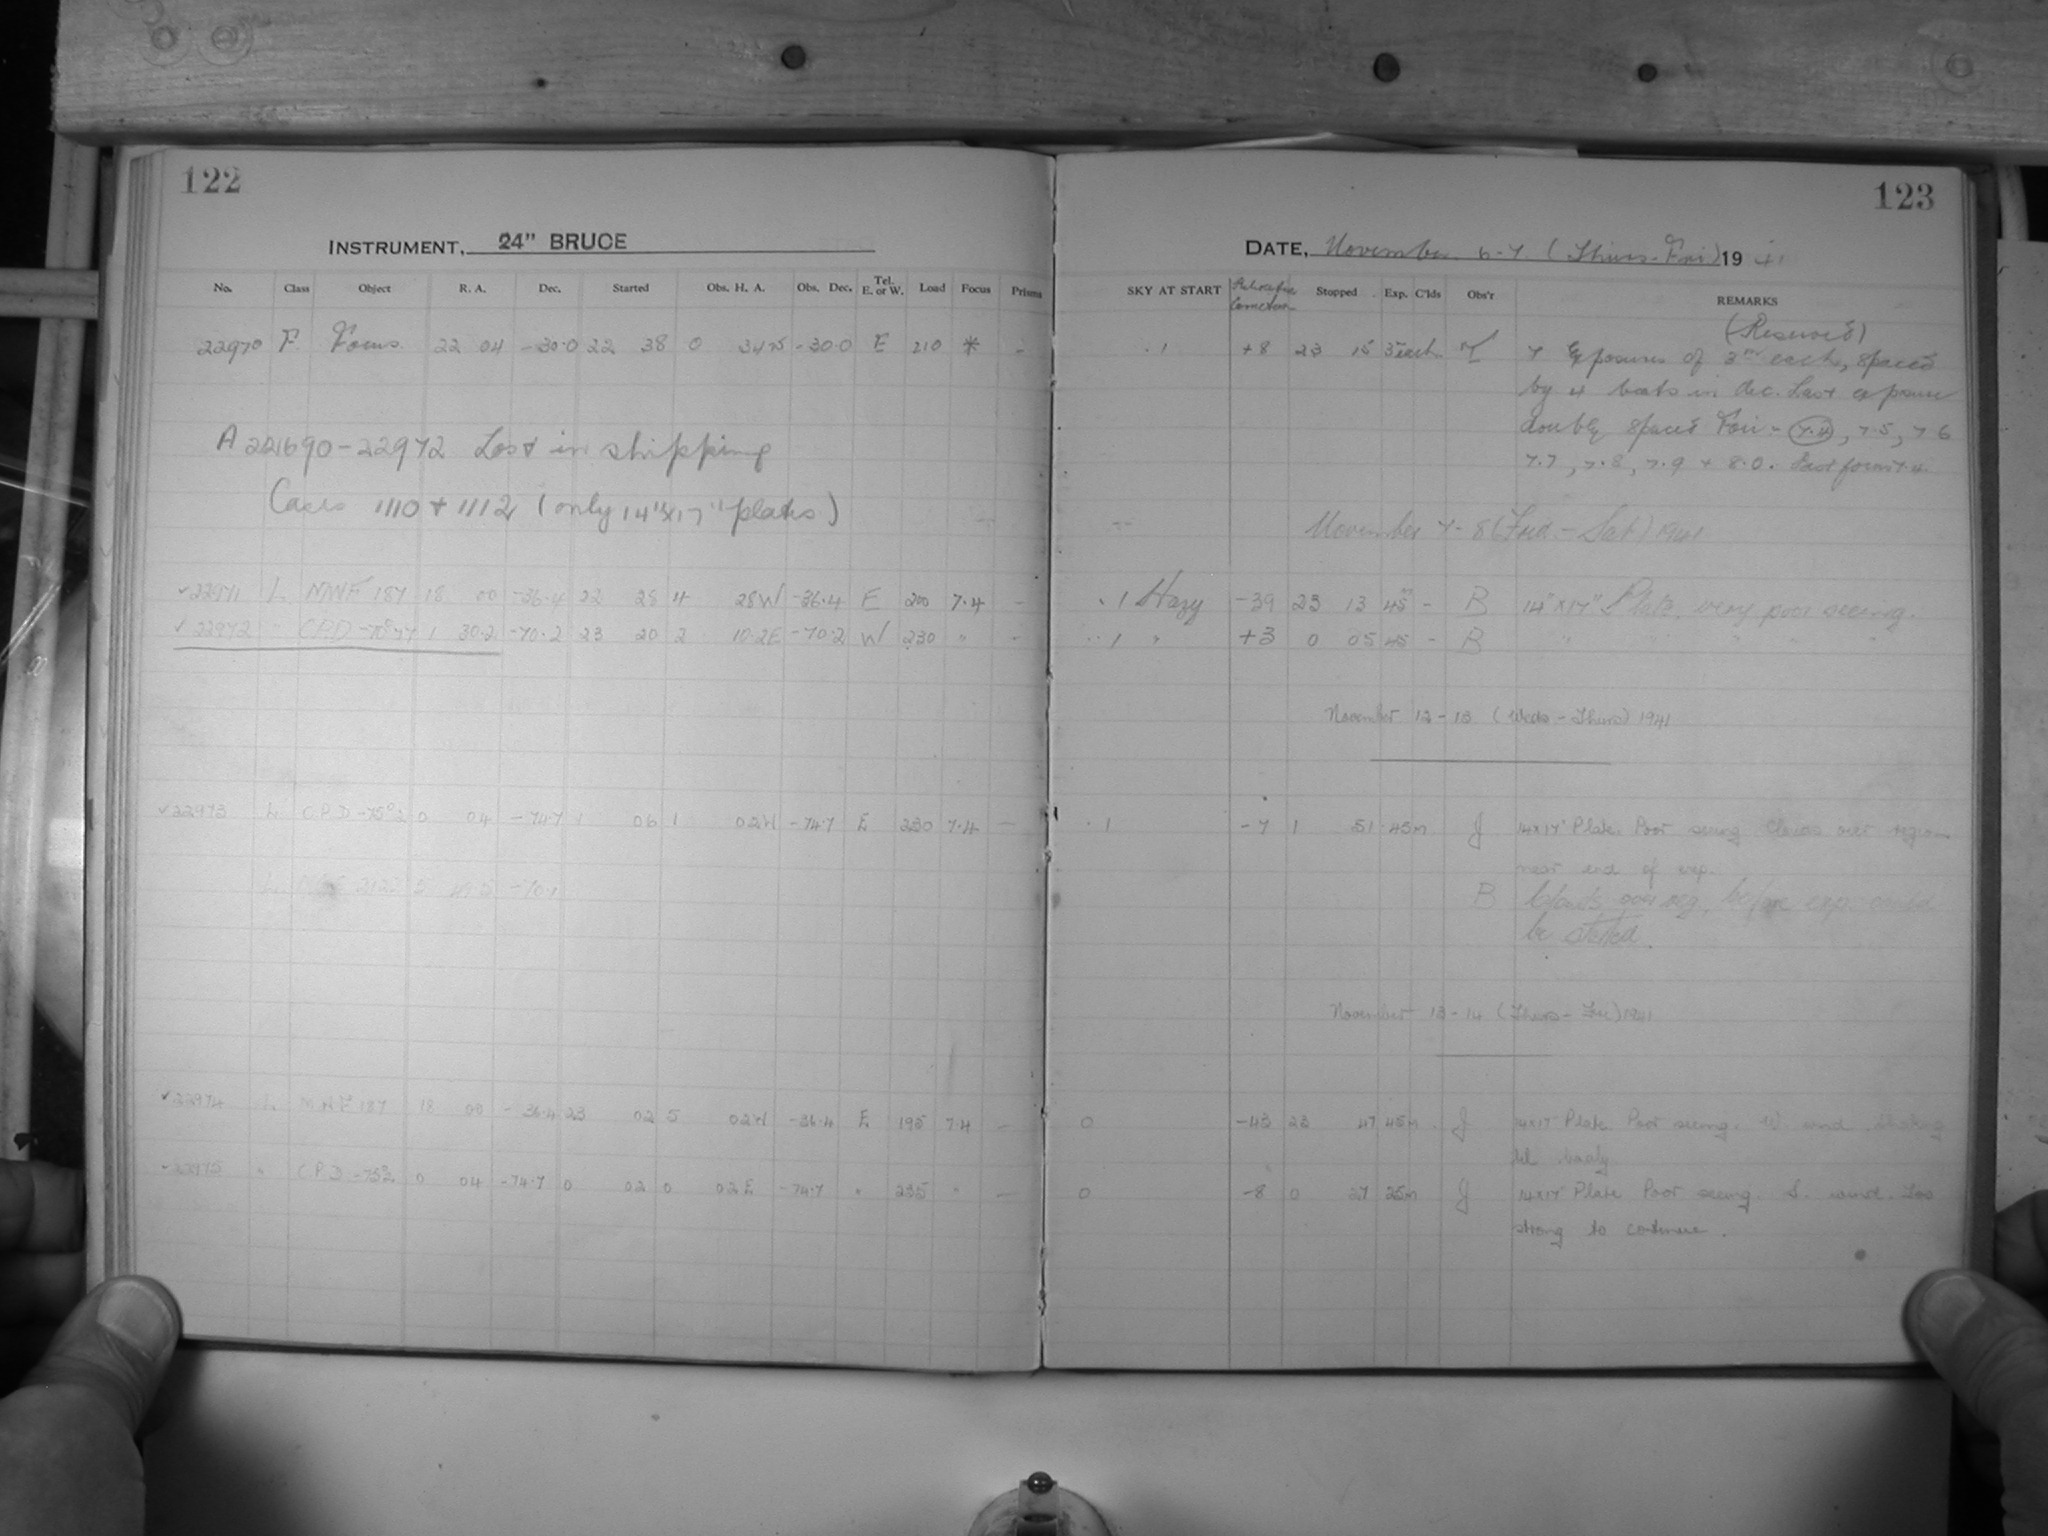 122
INSTRUMENT, 24" BRUCE
No. Class Object R. A. Dec. Started Obs. H. A. Obs. Dec. Tel. E. or W. Load Focus Prisms
22970 F. Focus. 22 04 -30.0 22 38 0 -30.0 E 210 * -
A 22690-22972 Lost in shipping
Cases 1110 + 1112 (only 14"x17" plates)
✓22971 L NWF 187 18 00 -36.4 22 28 4 28W -36.4 E 200 7.4 -
✓22972 " C.P.D -70°77 1 30.2 -70.2 23 20 2 10.2E -70.2 W 230 " -
✓22973 L C.P.D -75°2 0 04 -74.7 1 06 1 02W -74.7 E 230 7.4 -
L -70.1
✓22974 L 187 18 00 -36.4 23 02 5 02W -36.4 E 195 7.4 -
22975 " C.P.D -75°2 0 04 -74.7 0 02 0 02E -74.7 " 235 " -
123
DATE, November 6-7 (Thurs-Fri) 1941
SKY AT START Stopped Exp. C'lds Obs'r REMARKS
(Reserved)
.1 +8 23 15 3 each 7 Exposures of 3m each, spaced
by 4 beats in dec. Last exposure
doubly spaced Foci - 7.4, 7.5, 7.6
7.7, 7.8, 7.9 + 8.0. Best focus 7.4
November 7-8 (Frid - Sat) 1941
.1 Hazy -39 23 13 45m - B 14"x17" Plate. very poor seeing.
.1 " +3 0 05 45 - B " " " " "
November 12-13 (Weds - Thurs) 1941
.1 -7 1 51 45m J 14x17" Plate. Poor seeing Clouds over region
near end of exp.
B Clouds over reg. before exp. could
be started.
November 13-14 (Thurs - Fri) 1941
0 -43 23 47 45m J 14x17 Plate Poor seeing. W wind shaking
tel badly
0 -8 0 27 25m J 14x17 Plate Poor seeing. S. wind. Too
strong to continue.